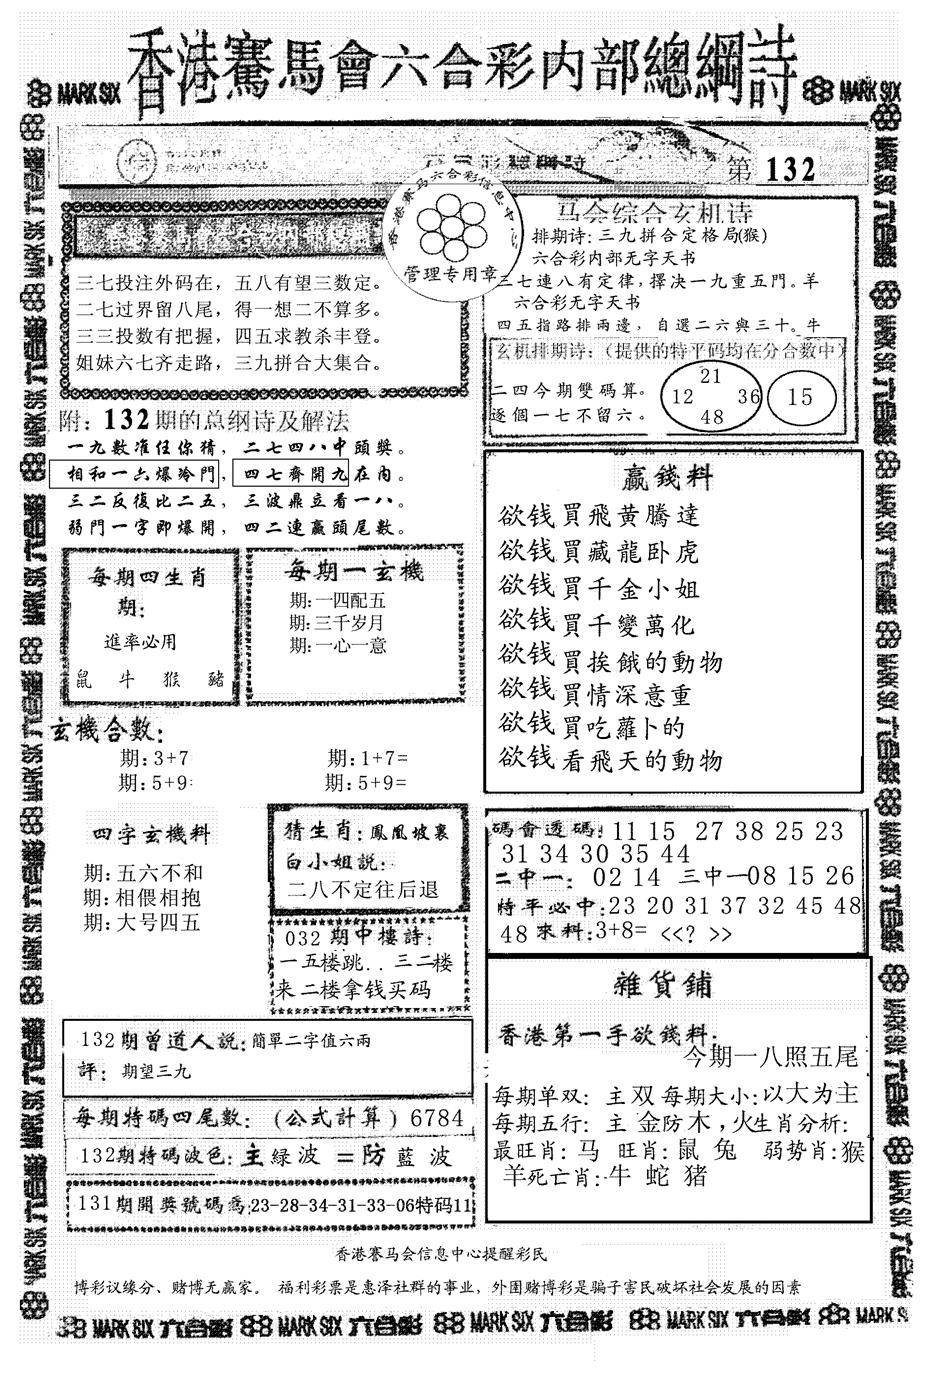 香港賽馬會六合彩内部總綱詩
MARK SIX
MARK SIX
第 132
香港赛马六合彩信息中心
管理专用章
三七投注外码在，五八有望三数定。
二七过界留八尾，得一想二不算多。
三三投数有把握，四五求教杀丰登。
姐妹六七齐走路，三九拼合大集合。
马会综合玄机诗
排期诗:三九拼合定格局(猴)
六合彩内部无字天书
三七連八有定律,擇决一九重五門。羊
六合彩无字天书
四五指路排兩邊，自選二六與三十。牛
玄机排期诗:（提供的特平码均在分合数中）
二四今期雙碼算。
逐個一七不留六。
21
12 36
48
15
附: 132期的总纲诗及解法
一九數准任你猜，二七四八中頭獎。
相和一六爆冷門，四七齊開九在内。
三二反復比二五，三波鼎立看一八。
弱門一字即爆開，四二連贏頭尾數。
每期四生肖
期:
進率必用
鼠 牛 猴 豬
每期一玄機
期:一四配五
期:三千岁月
期:一心一意
赢錢料
欲钱買飛黄騰達
欲钱買藏龍卧虎
欲钱買千金小姐
欲钱買千變萬化
欲钱買挨餓的動物
欲钱買情深意重
欲钱買吃蘿卜的
欲钱看飛天的動物
玄機合數:
期:3+7
期:1+7=
期:5+9:
期:5+9=
四字玄機料
期:五六不和
期:相偎相抱
期:大号四五
猜生肖:鳳凰坡裏
白小姐説:
二八不定往后退
032期中樓詩:
一五楼跳..三二楼
来二楼拿钱买码
碼會透碼:11 15 27 38 25 23
31 34 30 35 44
二中一: 02 14 三中一08 15 26
特平必中:23 20 31 37 32 45 48
48 來料:3+8= <<? >>
雜貨鋪
香港第一手欲錢料:
今期一八照五尾
每期单双: 主双每期大小:以大为主
每期五行: 主 金防木，火生肖分析:
最旺肖:马 旺肖:鼠 兔 弱势肖:猴
羊死亡肖:牛 蛇 猪
132期曾道人説:簡單二字值六兩
評: 期望三九
每期特碼四尾數: (公式計算) 6784
132期特碼波色:主緑波 =防藍波
131期開奬號碼爲:23-28-34-31-33-06特码11
香港赛马会信息中心提醒彩民
博彩议缘分、赌博无赢家。 福利彩票是惠泽社群的事业，外围赌博彩是骗子害民破坏社会发展的因素
MARK SIX 六合彩 MARK SIX 六合彩 MARK SIX 六合彩 MARK SIX 六合彩 MARK SIX